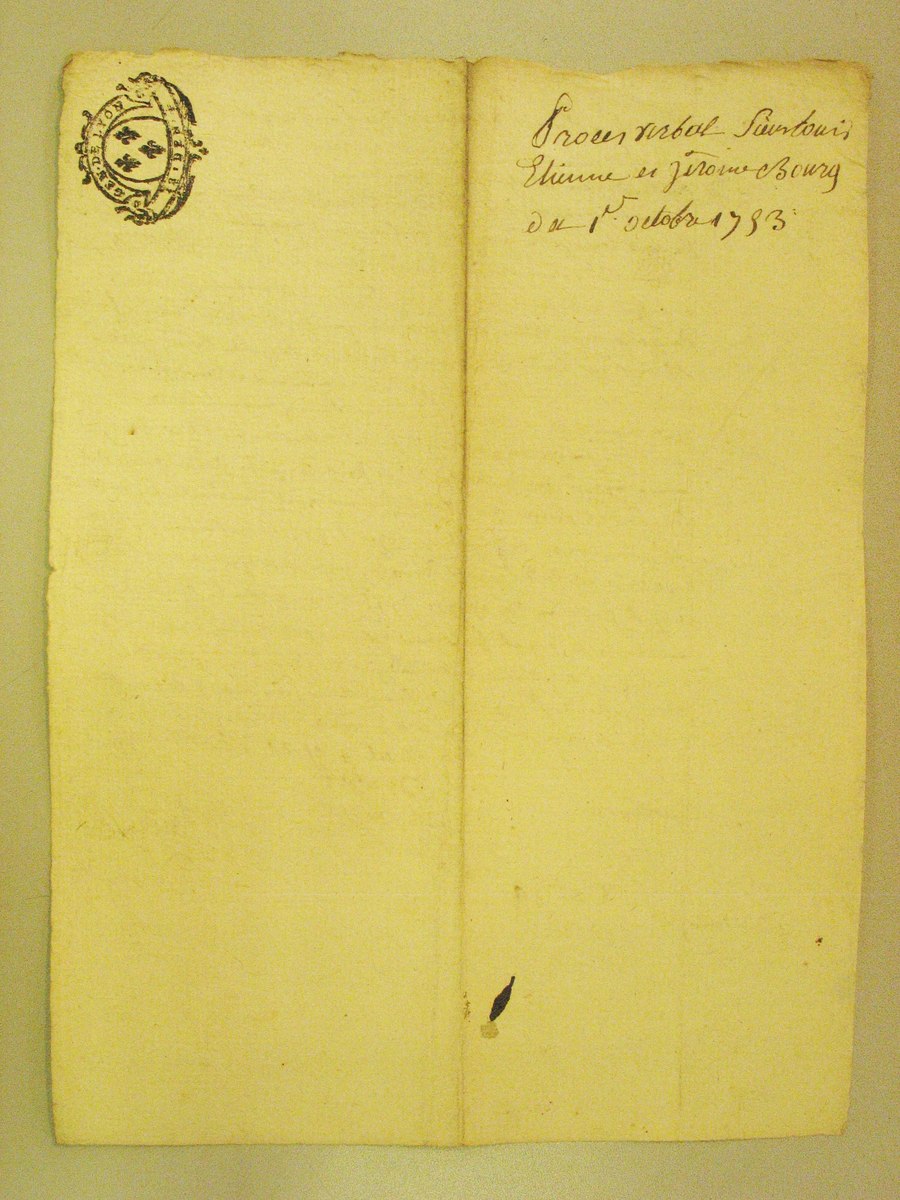 GEN. DE LYON
Proces verbal Sieurs Louis
Etienne et Jérome Bourg
du 1r. octobre 1753